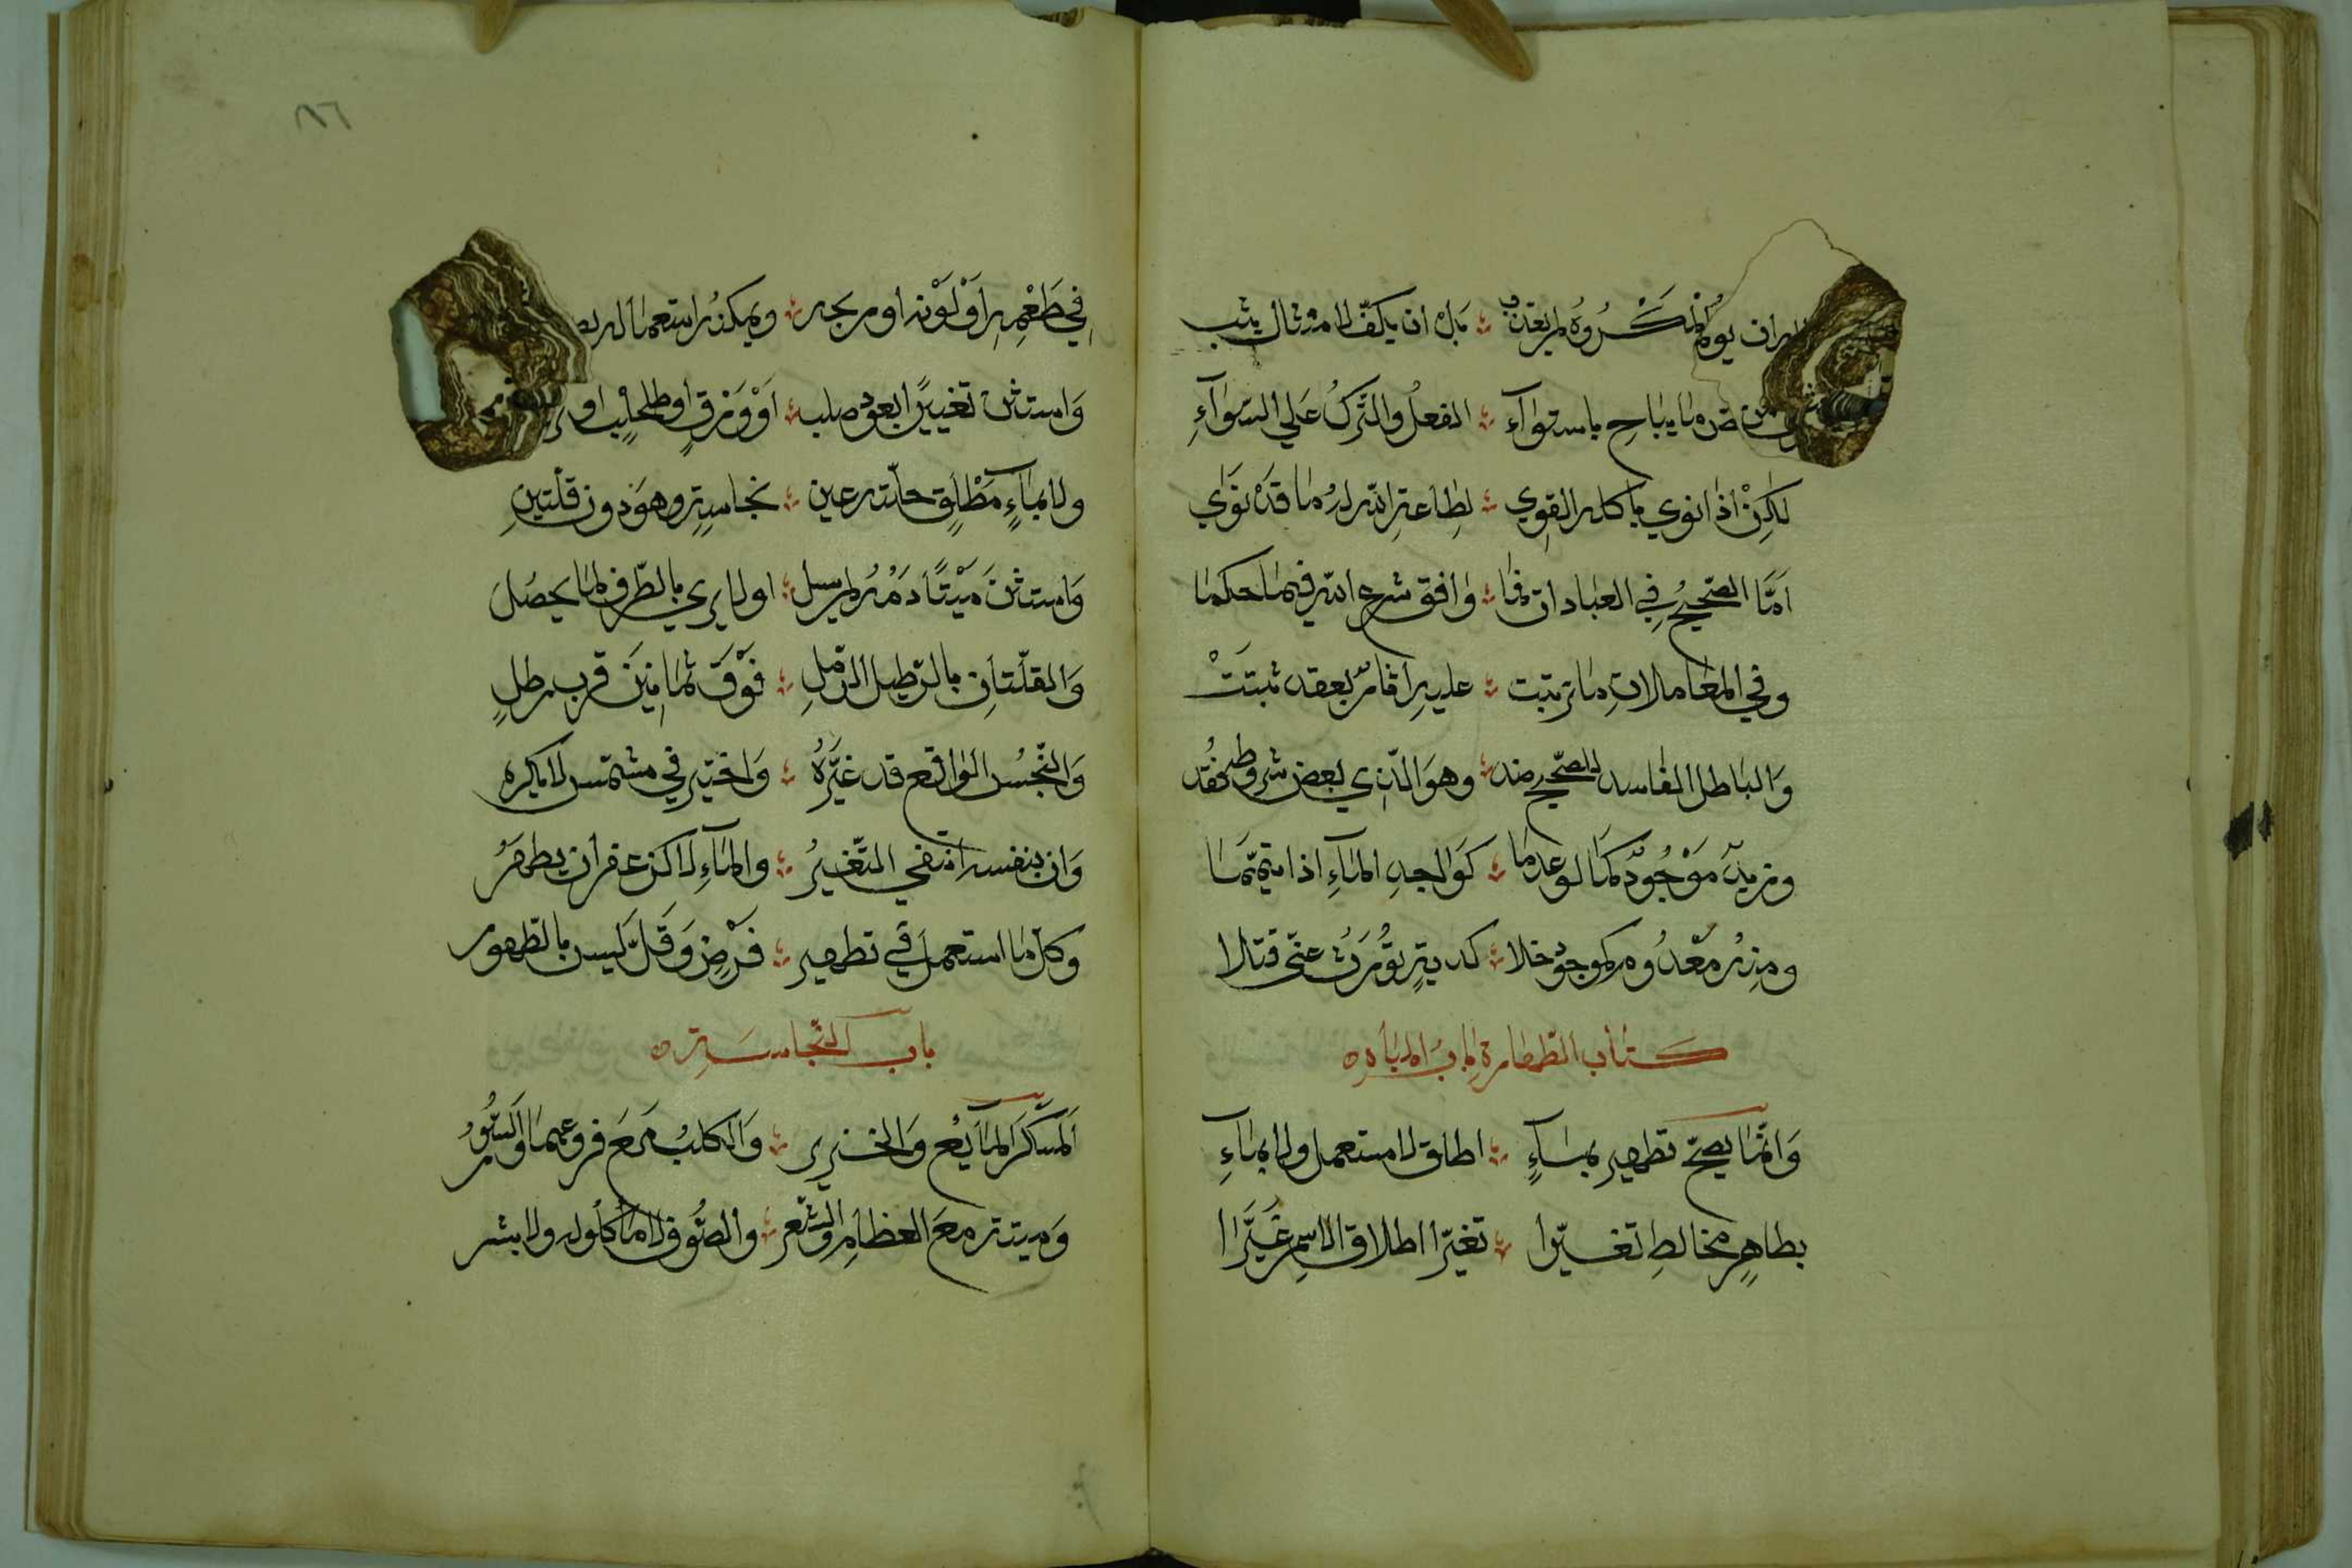 يؤم المكروه لم يعذب ؞ بل ان يكف لامتثال يثب
ما يباح باستوآء ؞ الفعل والترك على السوآءِ
لكِنْ اذا نوي باكله القوِي ؞ لِطاعة الله له ما قَدْ نوَاي
اَمَّا الصّحيحُ في العبادات فما ؞ وافق شرع الله فيما حكما
وفي المعاملاتِ ما ترتبت ؞ عليه اثار بعقد ثبتَتْ
وَالباطل الفاسد للصّحيح ضد ؞ وهوَ الّذي بعض شروطه فُقد
وزيد مَوْجُودٌ كما لو عدما ؞ كوَاجد المآءِ اذا تيمّمَا
ومنه مَعْدُوم كموجود خلا ؞ كدية تُوْرَثُ عن قتلا
كتاب الطهارة باب المياه ه
وَانّما يصحّ تطهير بمآءٍ ؞ اطلق لا مستعمل ولا بمآءِ
بطاهِرٍ مخالطِ تغيّرا ؞ تغيّرا اطلاق الاسمِ غَيَّرَا
٨٦
في طَعْمِه اَوْ لَوْنه او ريحه ؞ ويمكن استعماله
وَاستثن تغييرًا بعود صلب ؞ اَوْ وَرَقٍ او طحلب او
ولا بمآءٍ مَطْلَقٍ حلّته عين ؞ نجاسةٍ وهوَ دون قلّتينِ
وَاستثنَ مَيْتًا دَمُهُ لم يسل ؞ او لا يري بالطّرف لما يحصُلَ
وَالقلّتاَن بالرّطل الرّملِ ؞ فَوْقَ ثمانِينَ قرب رطلٍ
وَالنّجسُ الواقع قد غيَّرَهُ ؞ وَاختير في مشمّس لا يكره
وَان بنفسه انتفي التّغيرُ ؞ والمآءِ لا كزعفران يطهرُ
وكلّ ما استعملَ في تطهير ؞ فَرْضٍ وَقَلَّ لَيس بالطّهور
باب النّجاسَة ه
المسكر المآئع وَالخنزير ؞ وَالكلب مَعَ فروعهما والسّؤرُ
وَميتة معَ العظامِ والشّعر ؞ والصُّوف لا مأكُوله ولا بشر